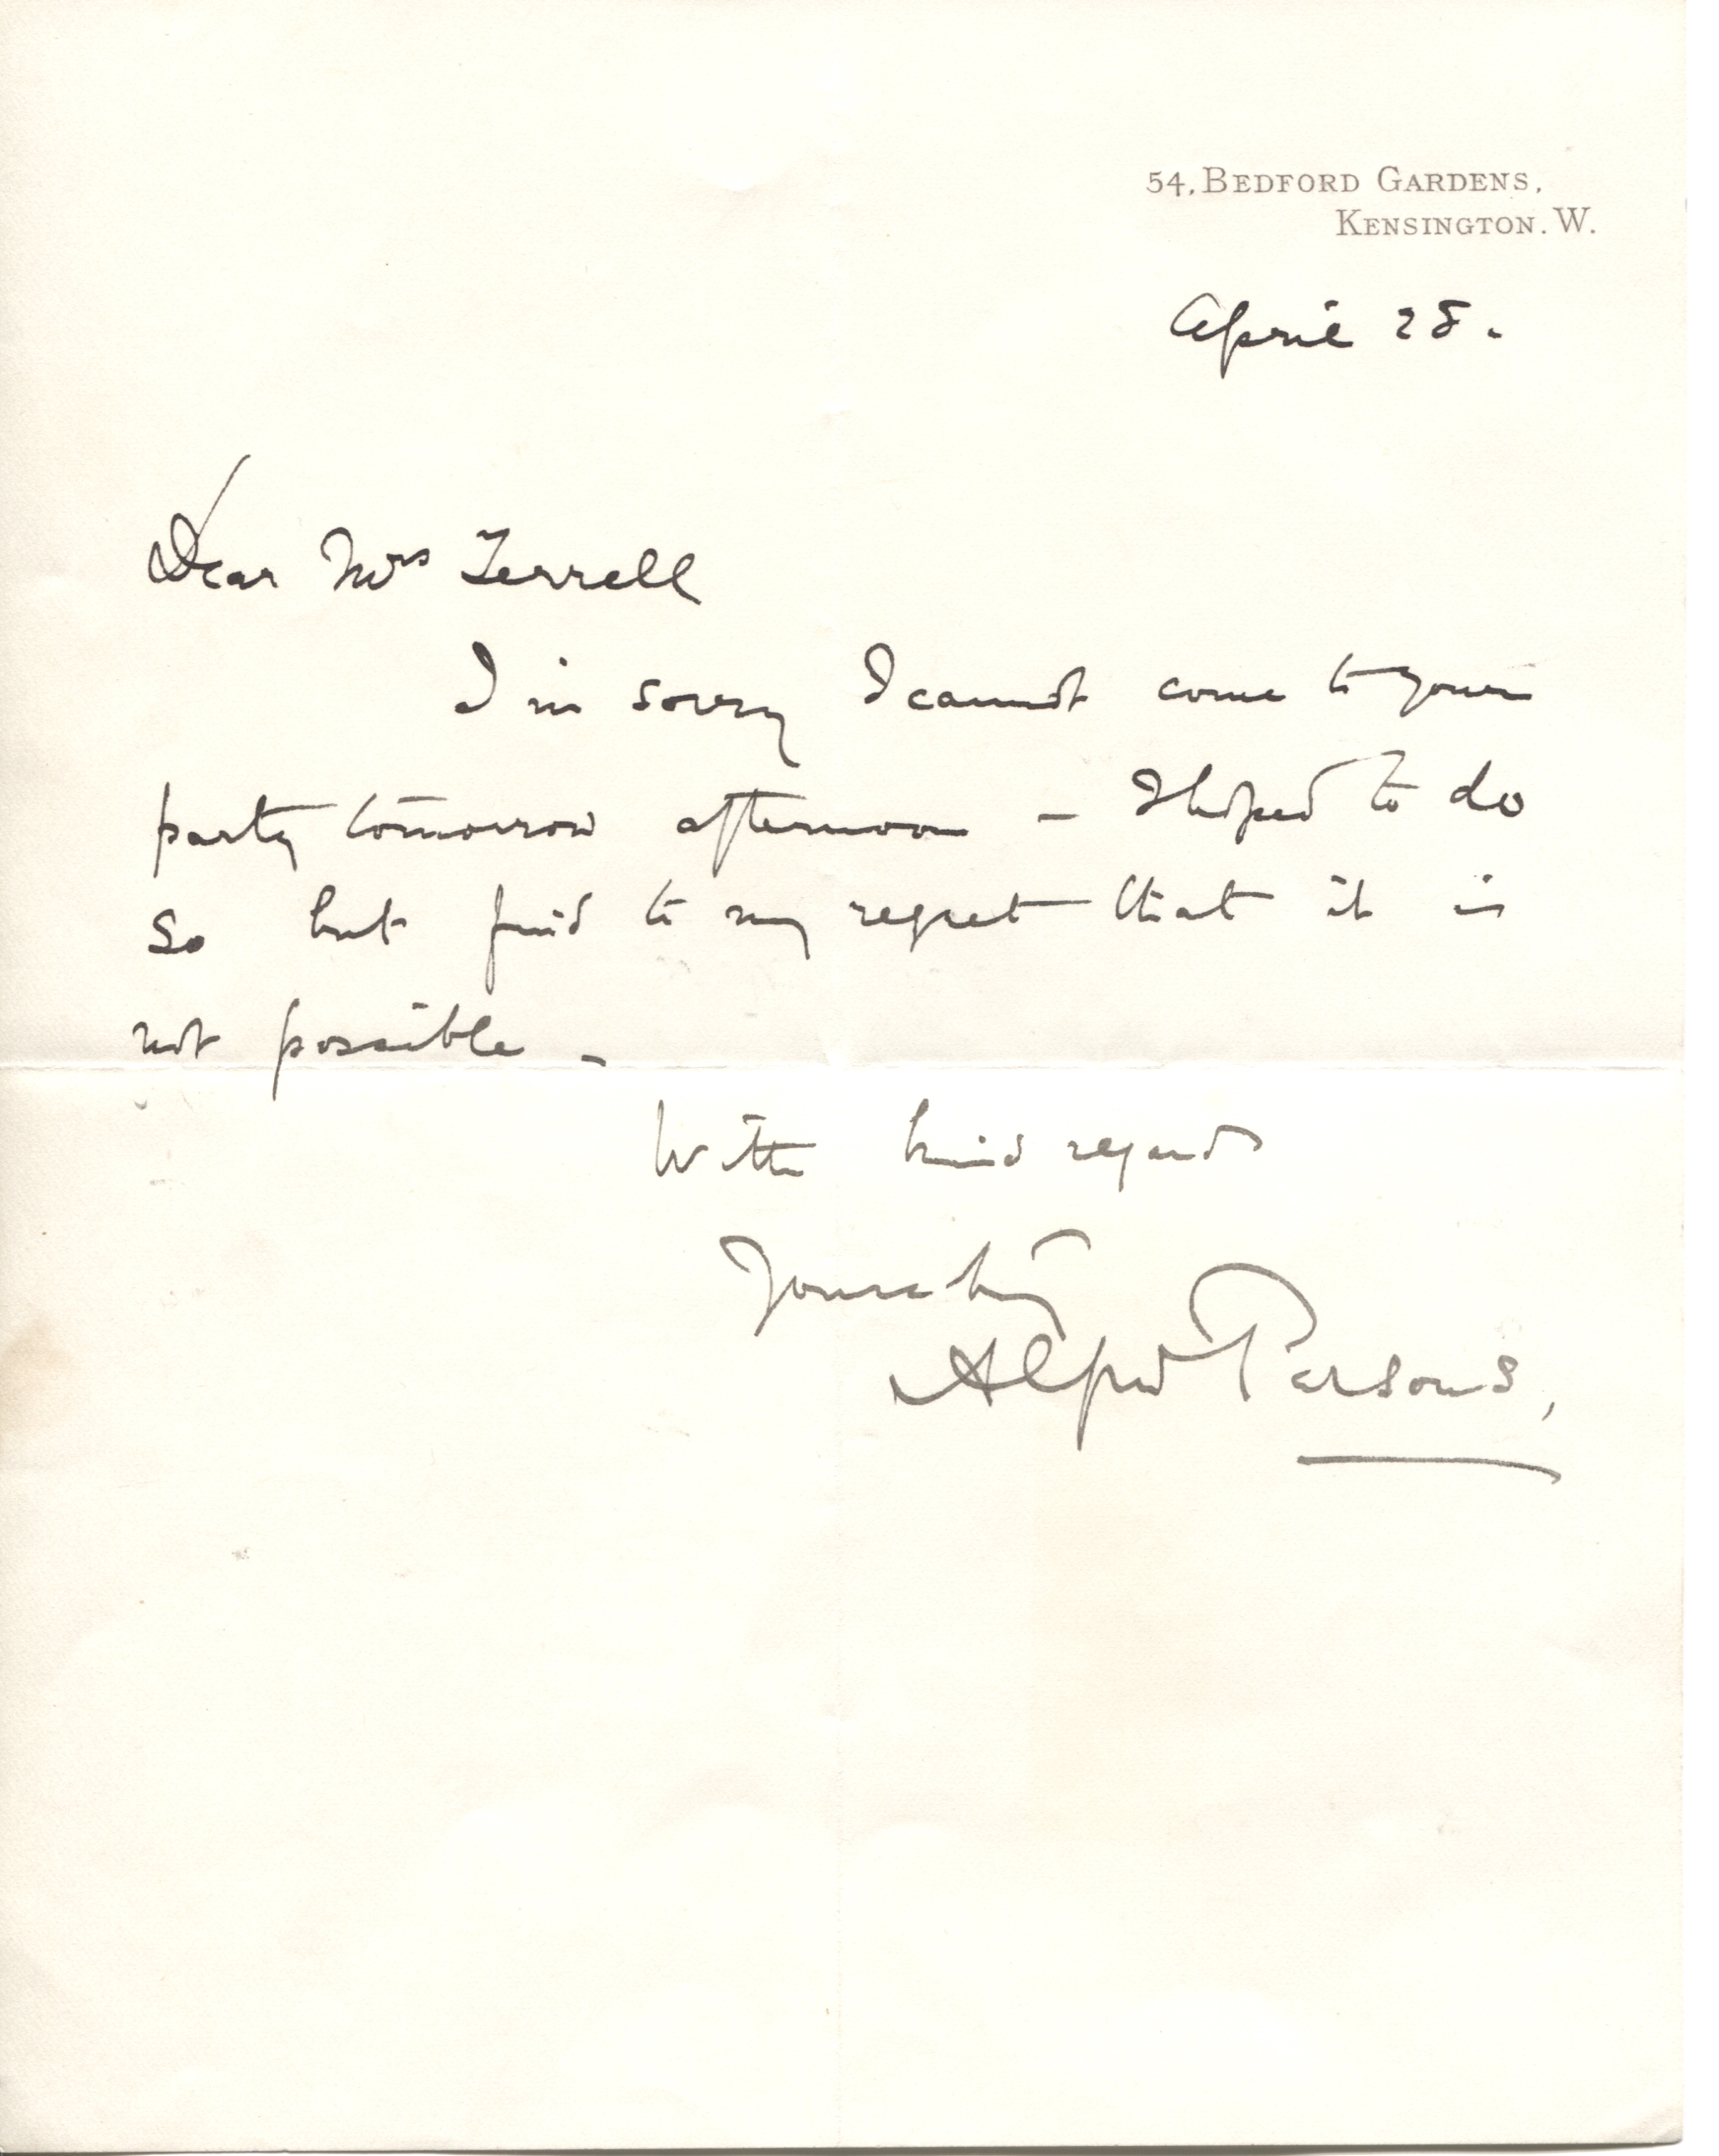 54, BEDFORD GARDENS,
KENSINGTON. W.
April 28.
Dear Mrs Terrell
I'm sorry I cannot come to your
party tomorrow afternoon – I hoped to do
so but find to my regret that it is
not possible –
With kind regards
Yours truly
Alfred Parsons,